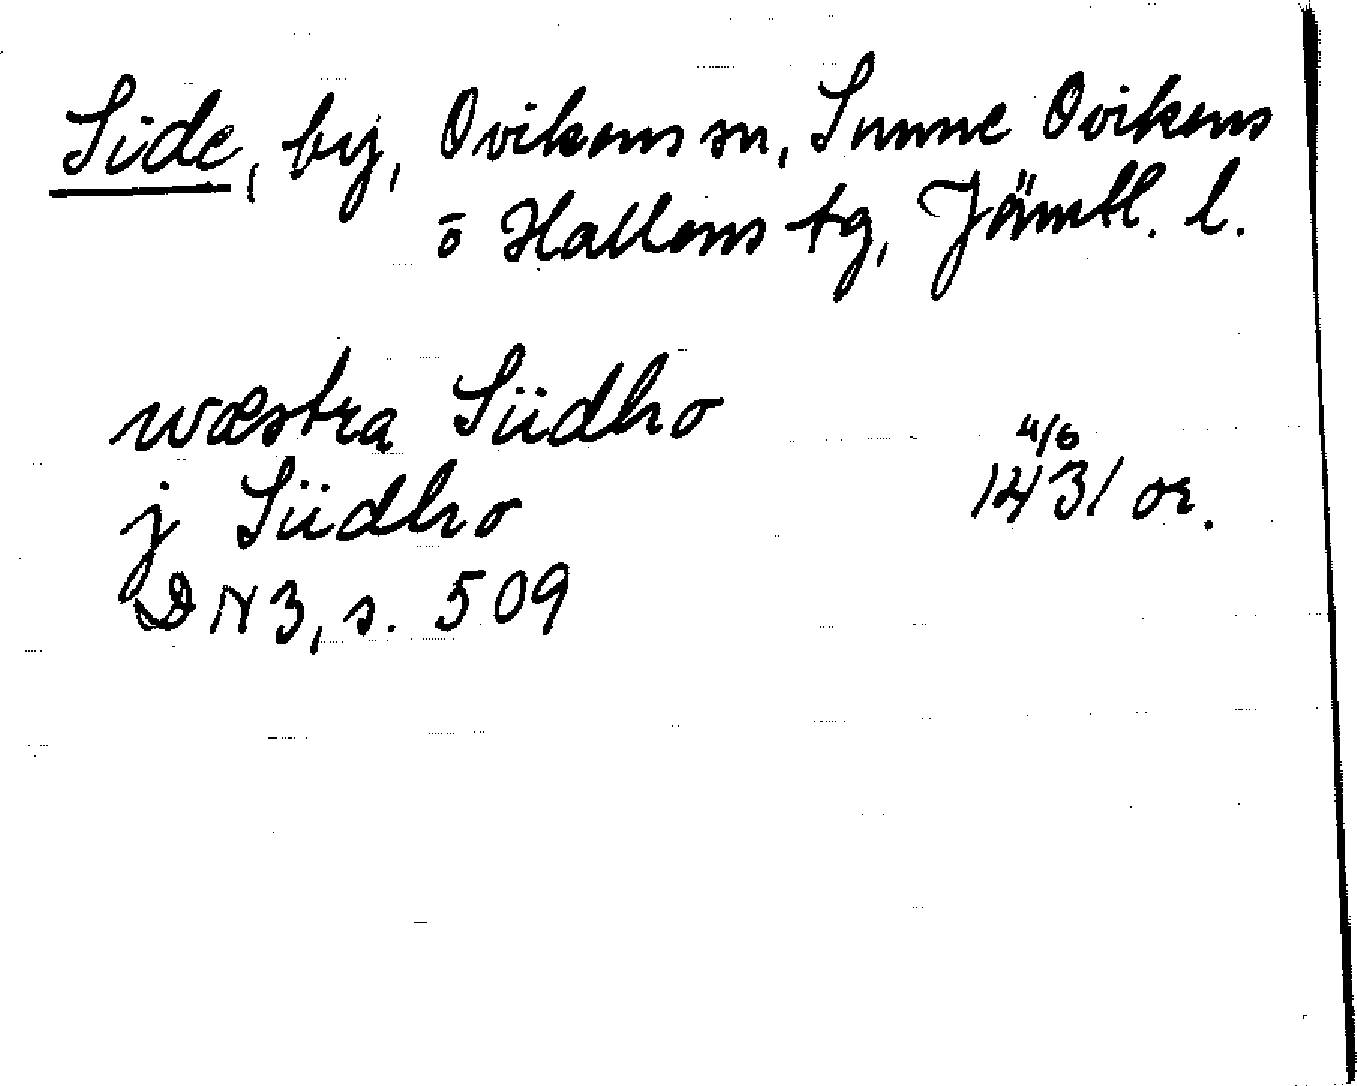 Side, by, Ovikens sn, Sunne Ovikens
o Hallens tg, Jämtl. l.
wæstra Siidho
4/6
j Siidho 1431 or.
DN 3, s. 509